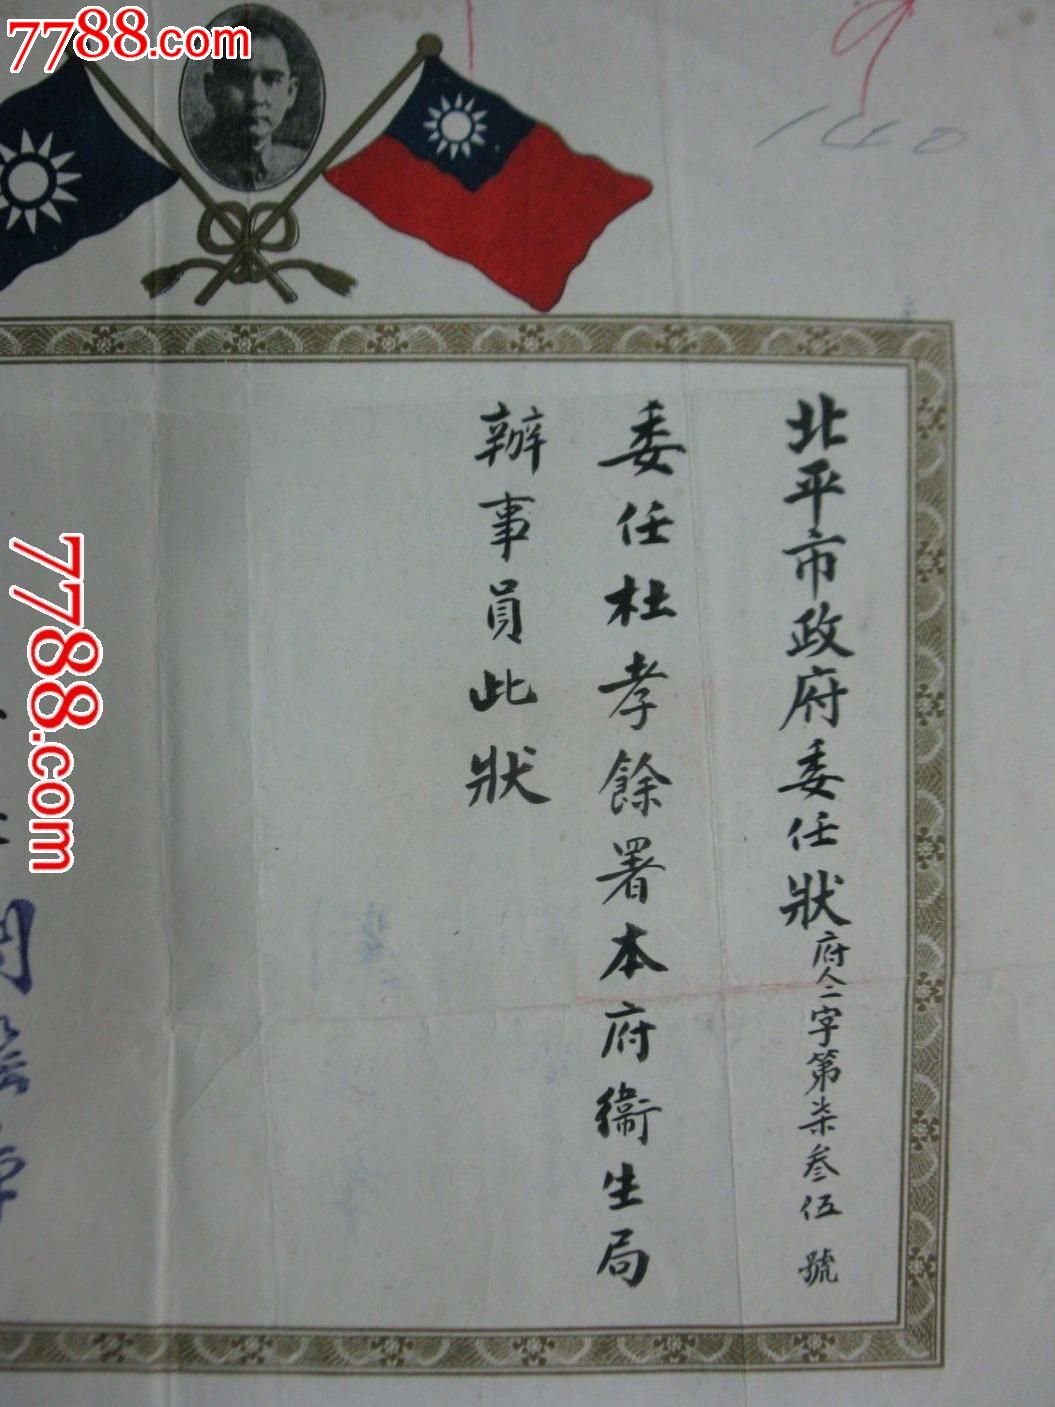 7788.com
140
北平市政府委任狀 府人二字第柒叁伍號
委任杜孝餘署本府衞生局
辦事員此狀
7788.com